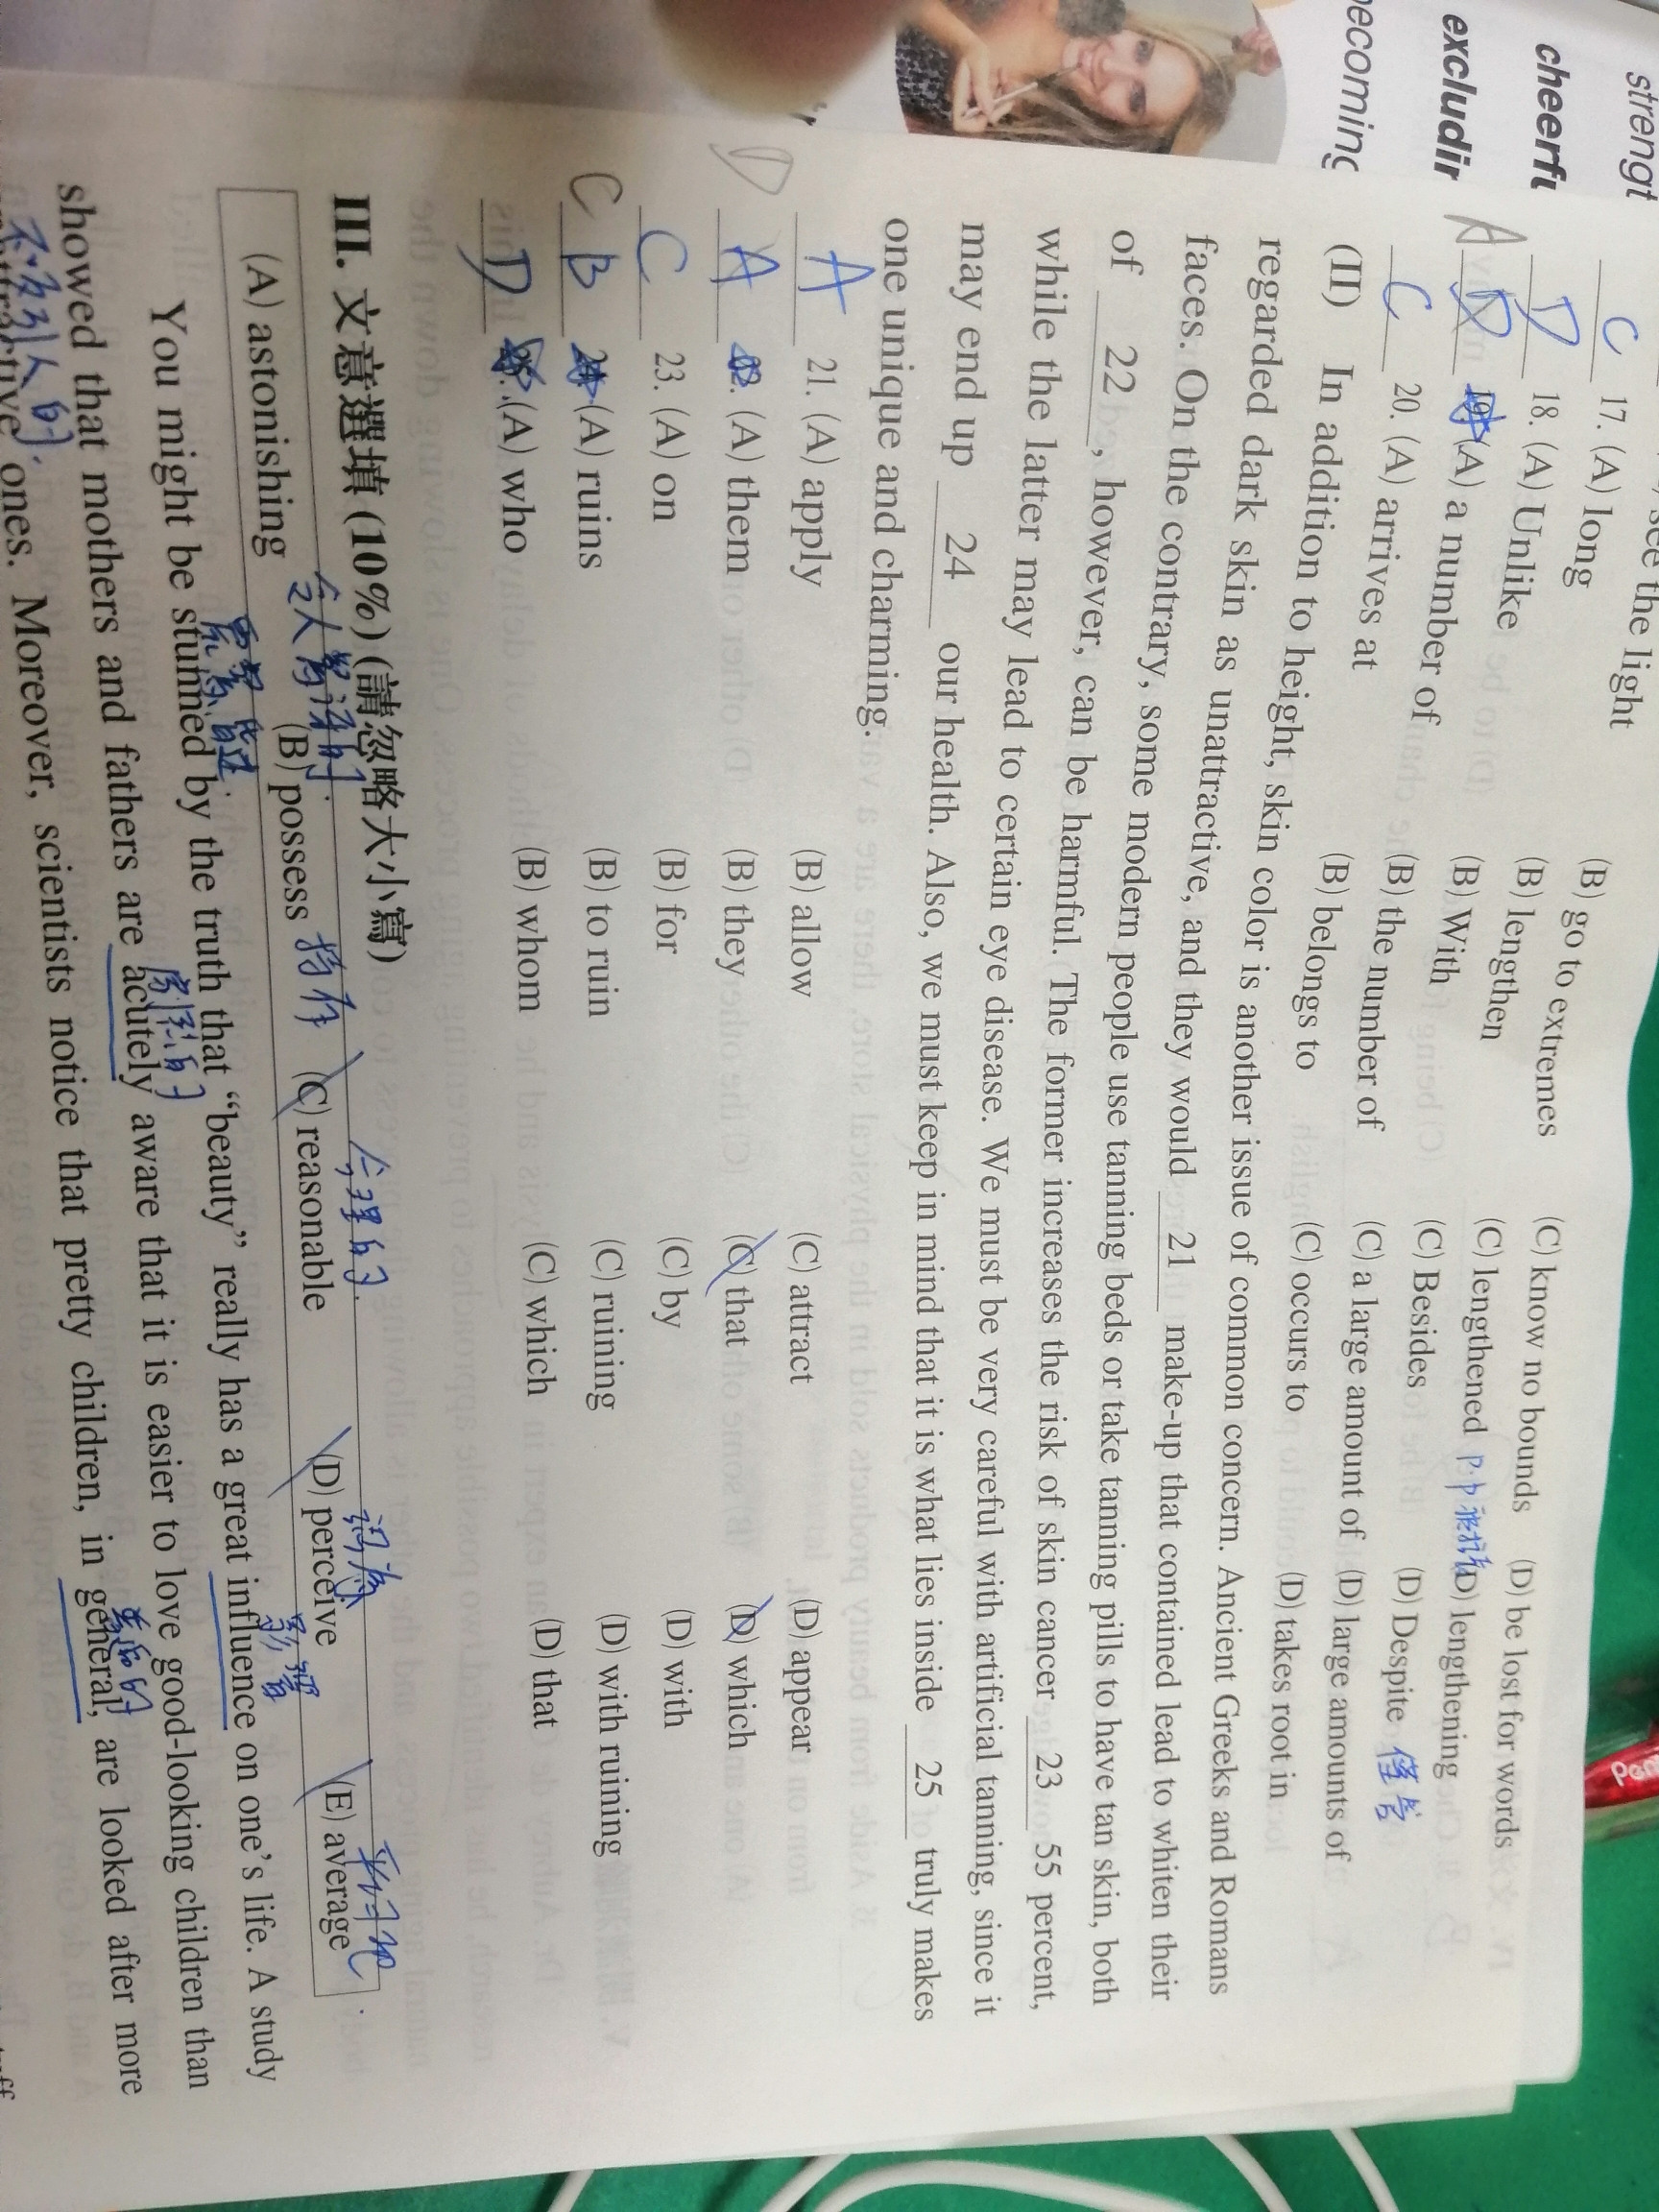 strengt
cheerfu
excludin
becoming
see the light
(B) go to extremes
(C) know no bounds
(D) be lost for words
C 17. (A) long
(B) lengthen
(C) lengthened
(D) lengthening
D 18. (A) Unlike
(B) With
(C) Besides
(D) Despite 儘管
A (A) a number of
(B) the number of
(C) a large amount of
(D) large amounts of
C 20. (A) arrives at
(B) belongs to
(C) occurs to
(D) takes root in
(II) In addition to height, skin color is another issue of common concern. Ancient Greeks and Romans
regarded dark skin as unattractive, and they would 21 make-up that contained lead to whiten their
faces. On the contrary, some modern people use tanning beds or take tanning pills to have tan skin, both
of 22, however, can be harmful. The former increases the risk of skin cancer 23 55 percent,
while the latter may lead to certain eye disease. We must be very careful with artificial tanning, since it
may end up 24 our health. Also, we must keep in mind that it is what lies inside 25 truly makes
one unique and charming.
A 21. (A) apply
(B) allow
(C) attract
(D) appear
D A (A) them
(B) they
(C) that
(D) which
C 23. (A) on
(B) for
(C) by
(D) with
C B (A) ruins
(B) to ruin
(C) ruining
(D) with ruining
D (A) who
(B) whom
(C) which
(D) that
III. 文意選填 (10%) (請忽略大小寫)
(A) astonishing 令人驚訝的
(B) possess 擁有
(C) reasonable 合理的
(D) perceive 認為
(E) average 平均
You might be stunned by the truth that “beauty” really has a great influence on one’s life. A study
影響
showed that mothers and fathers are acutely aware that it is easier to love good-looking children than
不吸引人的
unattractive ones. Moreover, scientists notice that pretty children, in general, are looked after more